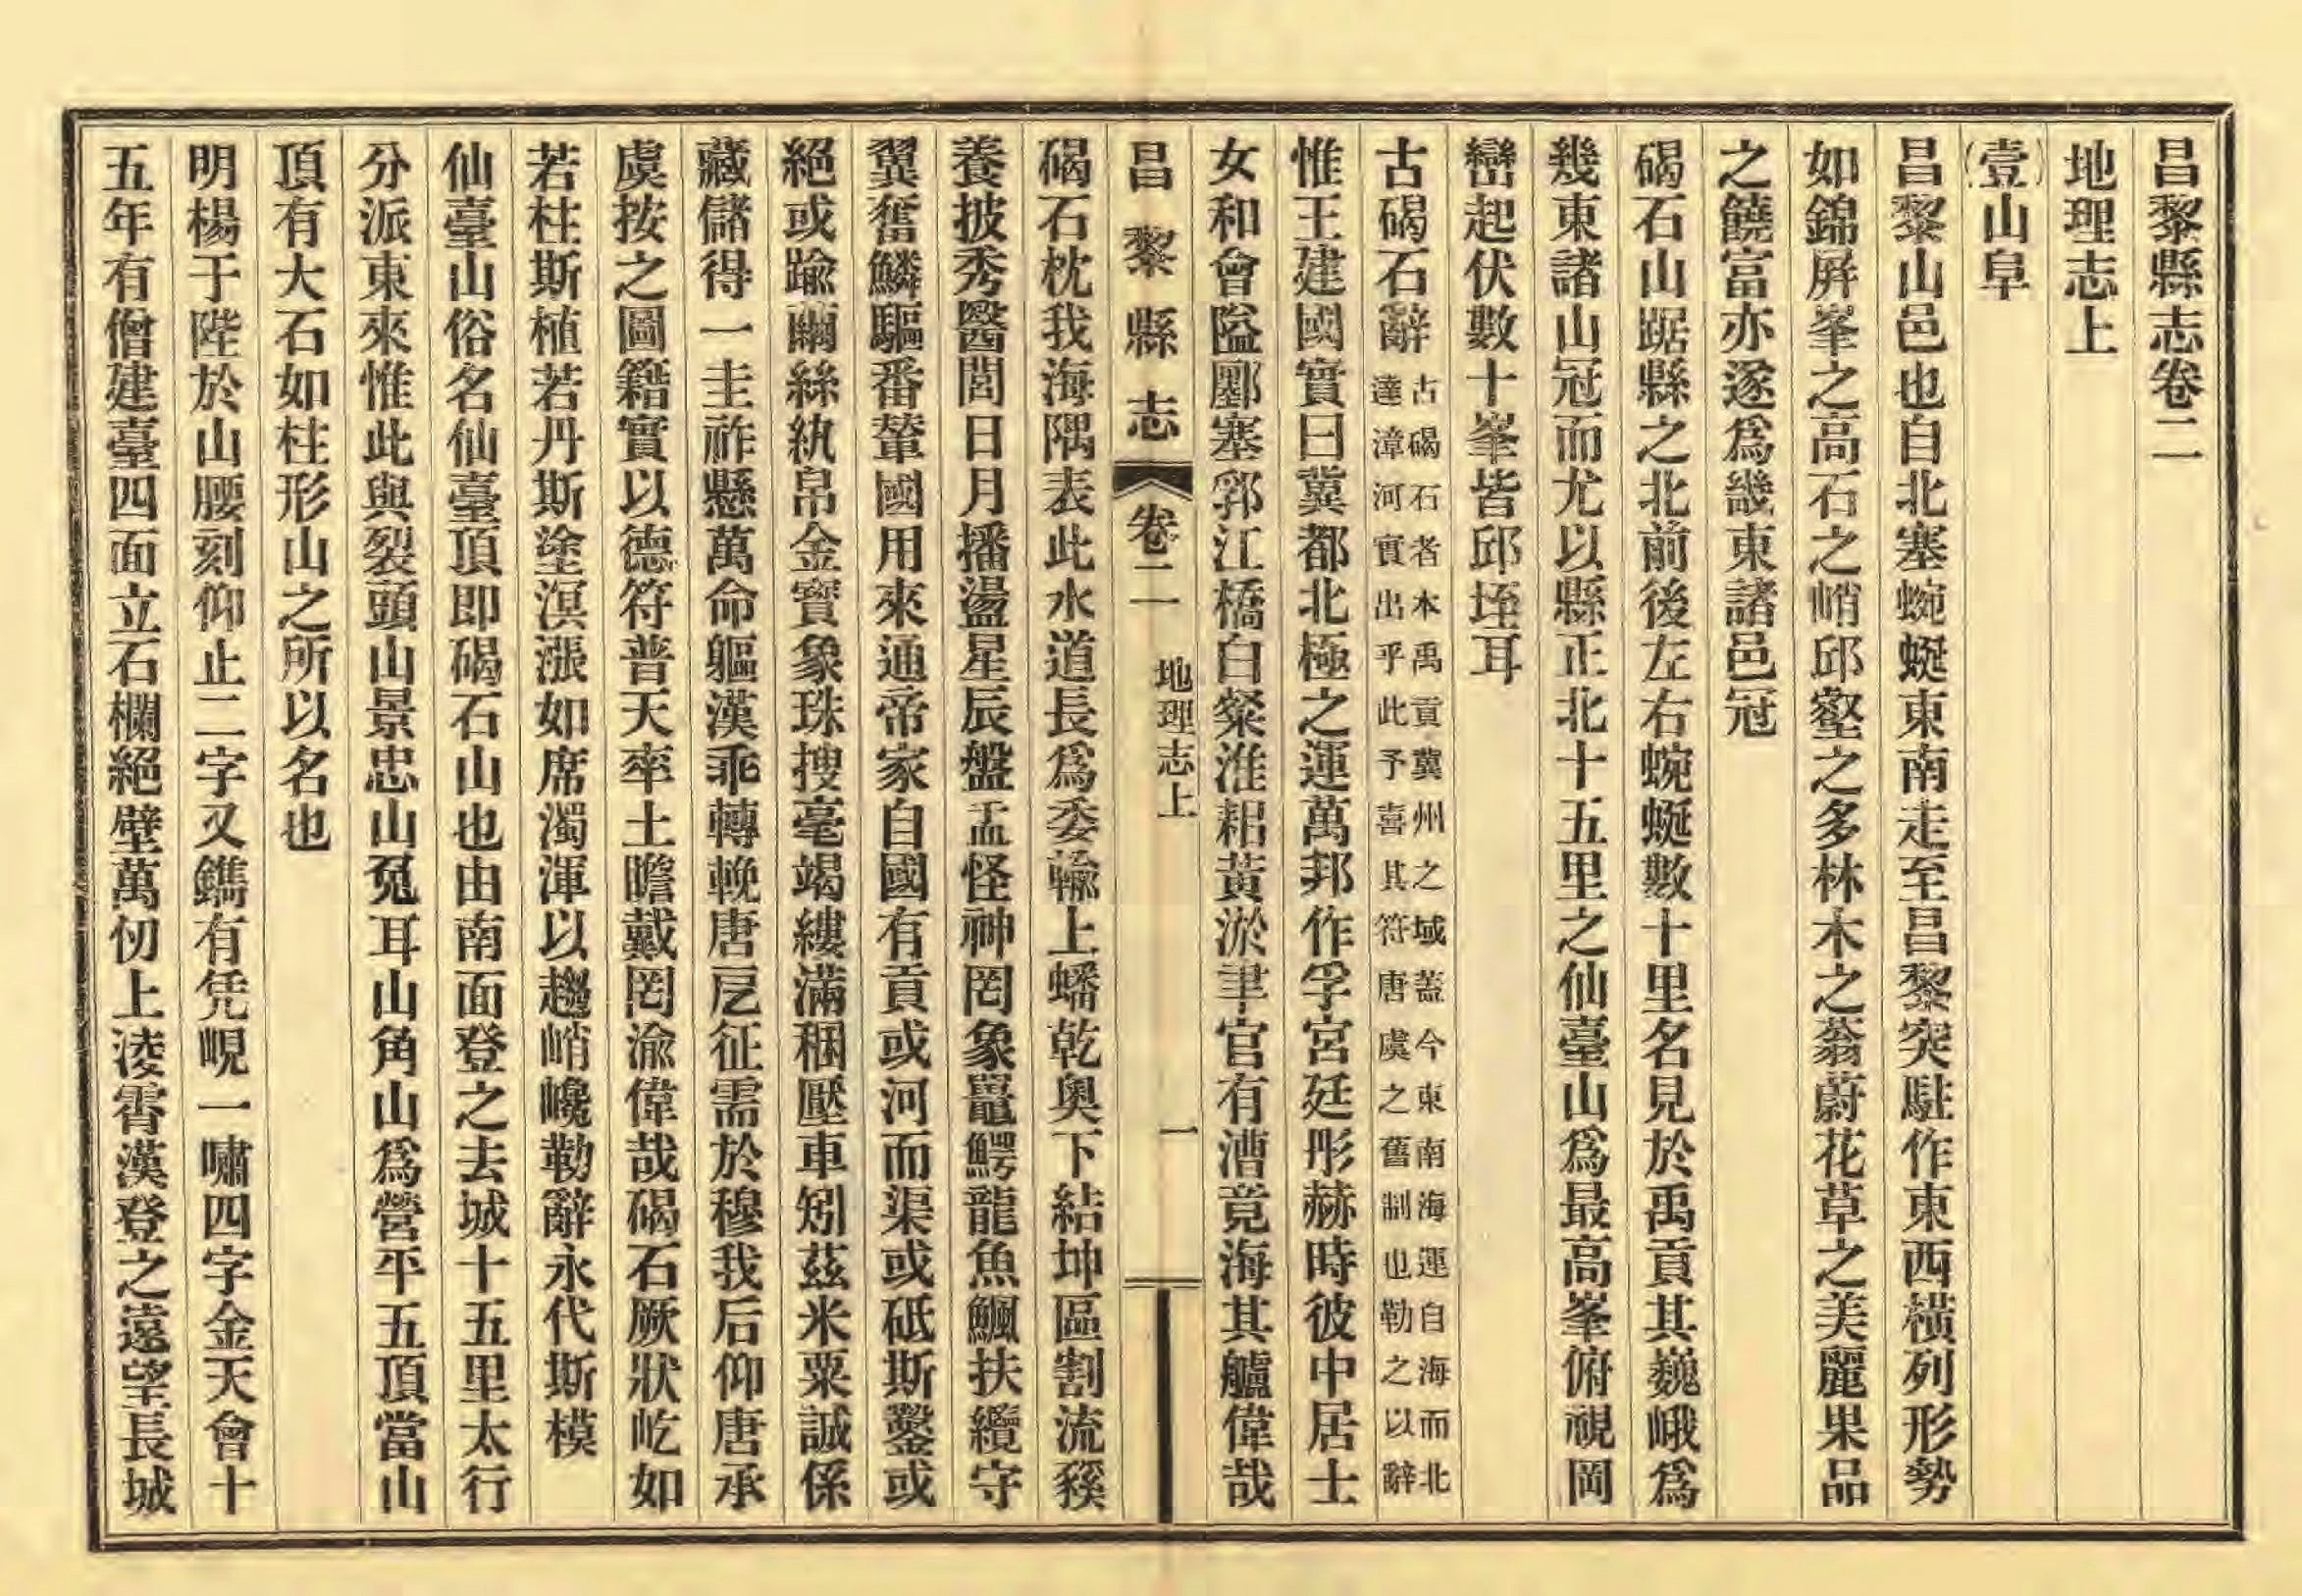 昌黎縣志卷二
地理志上
(壹)山阜
昌黎山邑也自北塞蜿蜒東南走至昌黎突駐作東西橫列形勢
如錦屏峯之高石之峭邱壑之多林木之蓊蔚花草之美麗果品
之饒富亦遂爲畿東諸邑冠
碣石山踞縣之北前後左右蜿蜒數十里名見於禹貢其巍峨爲
幾東諸山冠而尤以縣正北十五里之仙臺山爲最高峯俯視岡
巒起伏數十峯皆邱垤耳
古碣石辭
古碣石者本禹貢冀州之域蓋今東南海運自海而北
達漳河實出乎此予喜其符唐虞之舊制也勒之以辭
惟王建國實曰冀都北極之運萬邦作孚宮廷彤赫時彼中居士
女和會隘郾塞郛江橋白粲淮耜黃淤聿官有漕竟海其艫偉哉
昌黎縣志 卷二 地理志上 一
碣石枕我海隅表此水道長爲委輸上蟠乾奧下結坤區割流豯
養披秀醫閭日月播盪星辰盤盂怪神罔象鼉鰐龍魚颿扶纜守
翼奮鱗驅番輦國用來通帝家自國有貢或河而渠或砥斯鑿或
絕或踰繭絲紈帛金寶象珠搜毫竭縷滿稛壓車矧茲米粟誠係
藏儲得一圭祚懸萬命軀漢乖轉輓唐戹征需於穆我后仰唐承
虞按之圖籍實以德符普天率土瞻戴罔渝偉哉碣石厥狀屹如
若柱斯植若丹斯塗溟漲如席濁渾以趨峭巉勒辭永代斯模
仙臺山俗名仙臺頂即碣石山也由南面登之去城十五里太行
分派東來惟此與裂頭山景忠山兔耳山角山爲營平五頂當山
頂有大石如柱形山之所以名也
明楊于陛於山腰刻仰止二字又鐫有凭峴一嘯四字金天會十
五年有僧建臺四面立石欄絕壁萬仞上淩霄漢登之遠望長城